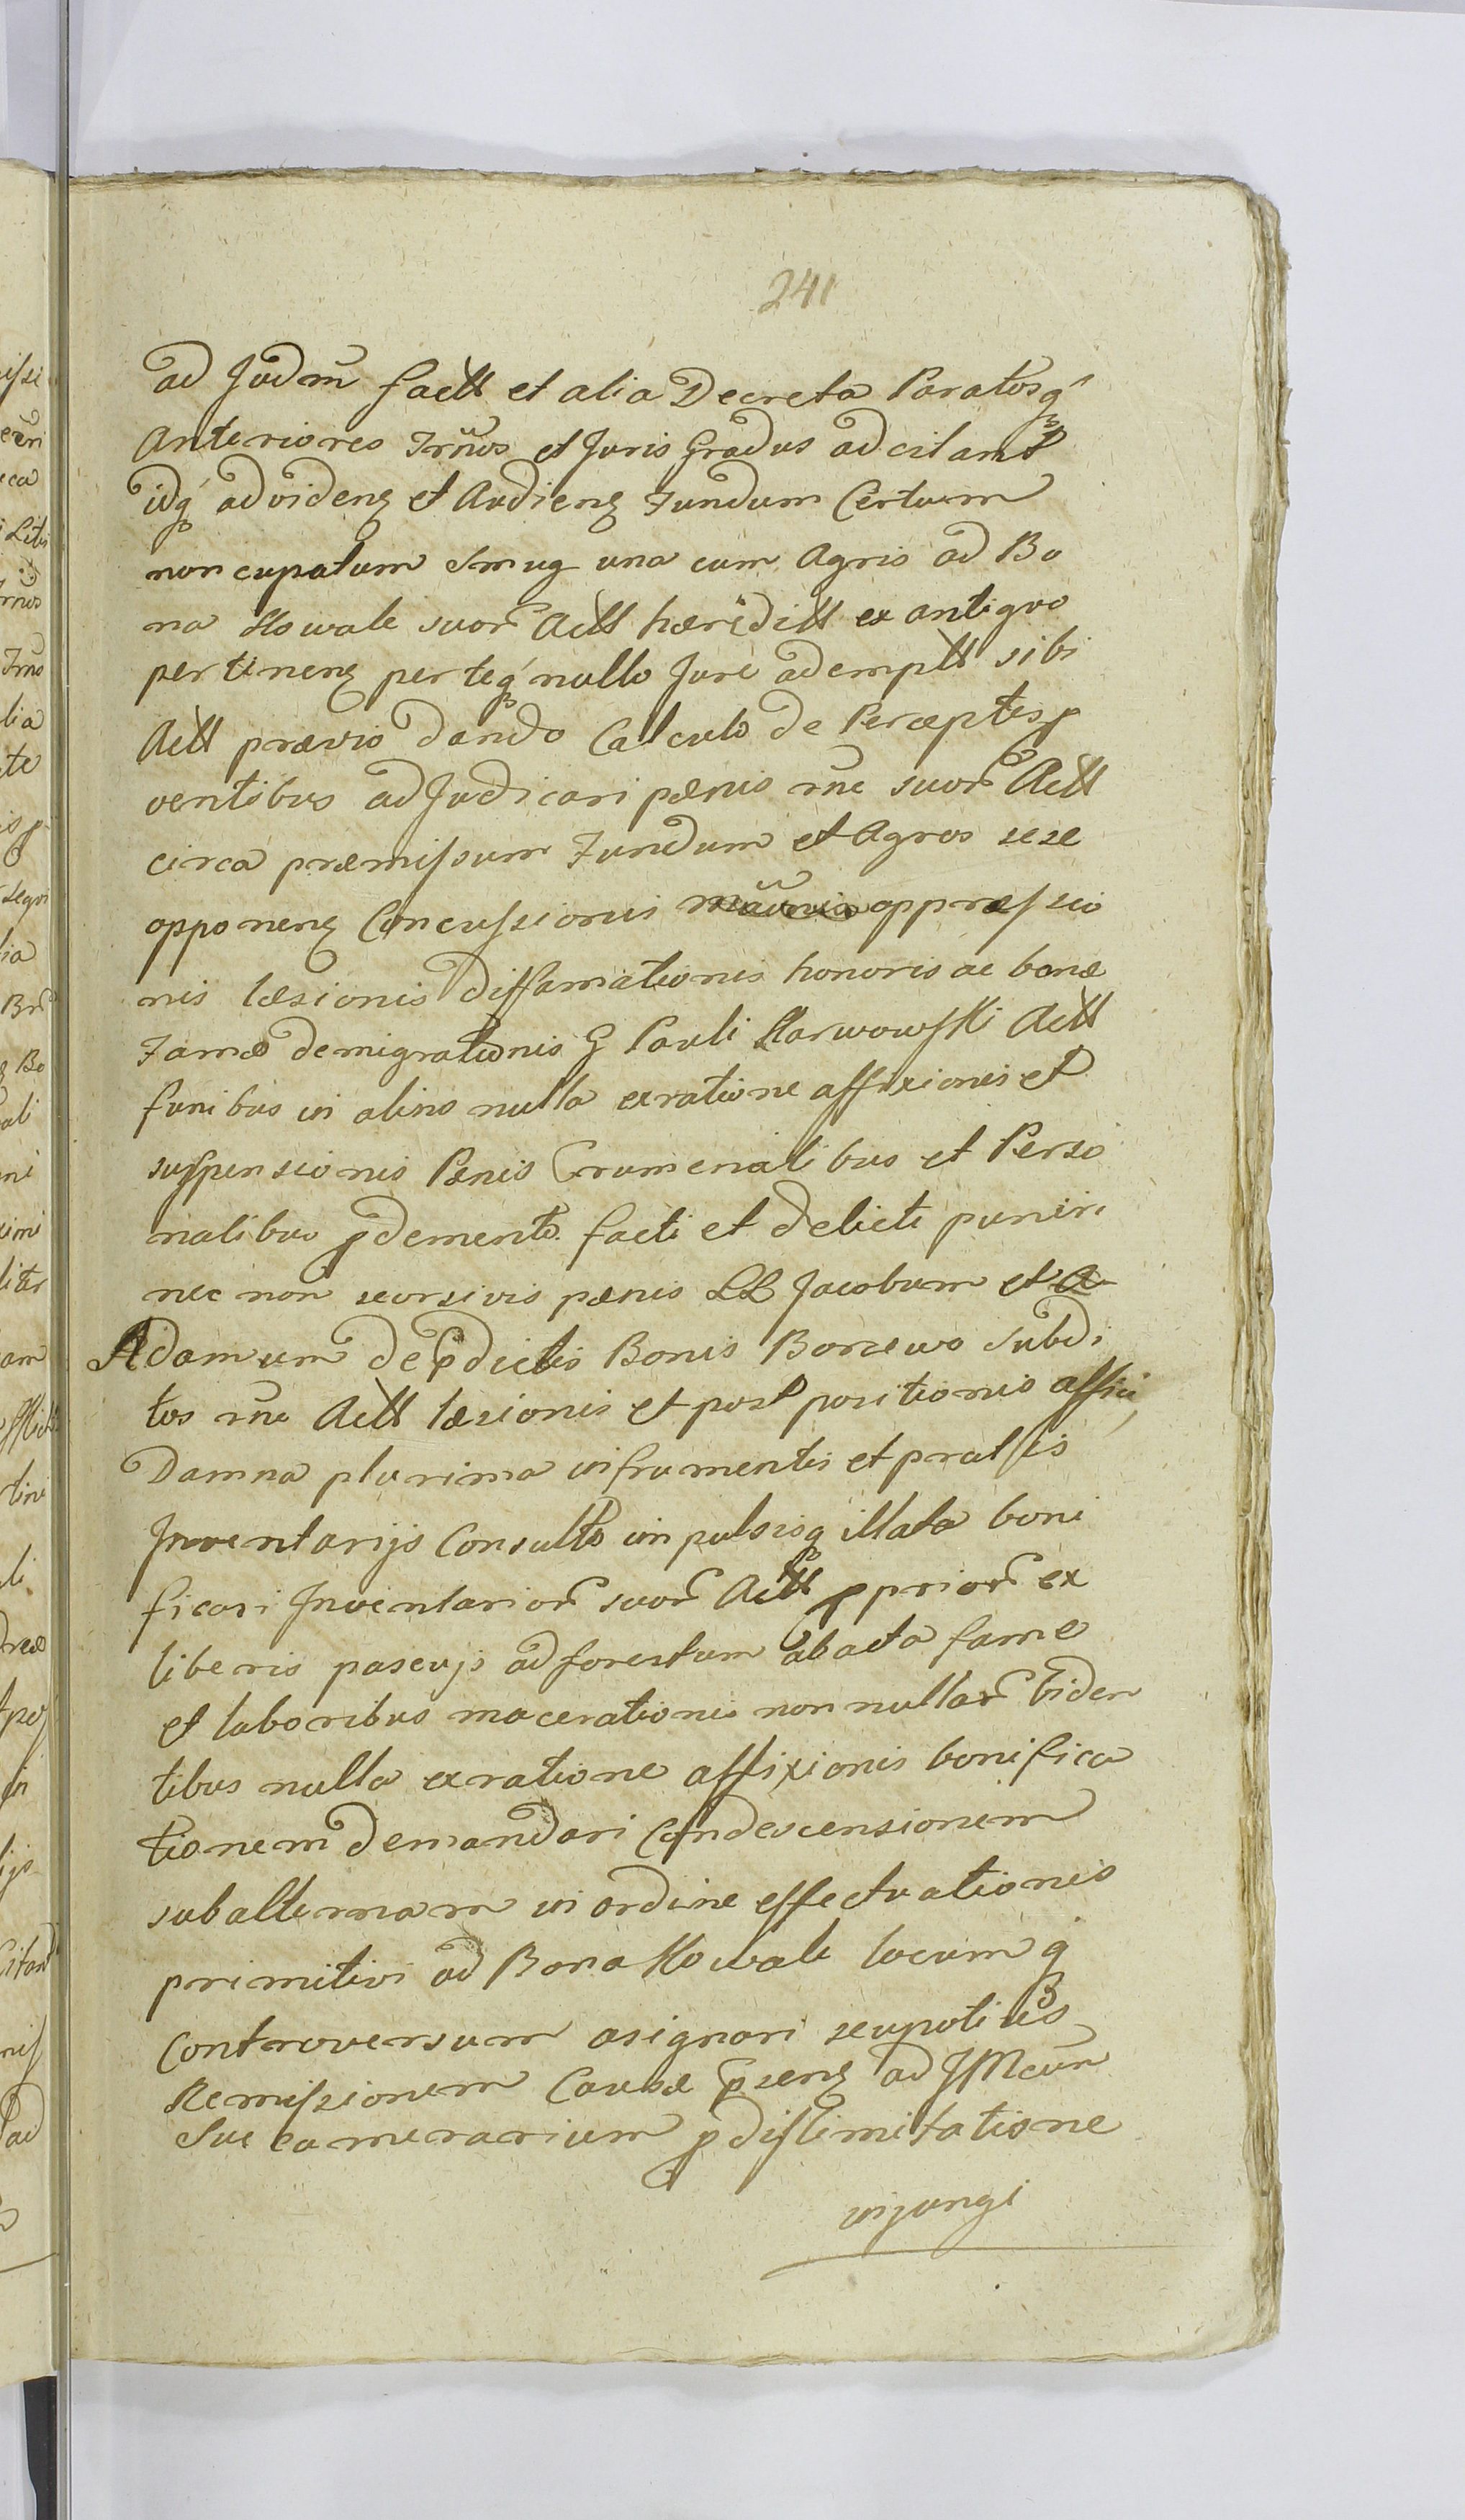 241
ad Judm factt et alia Decreta Paratosq
Anteriores Trnos et Juris Gradus adcitant
idq ad videnz et Audienz Fundum Certum
noncupatum Smug una cum Agris ad Bo
na Kowale suor Actt hæreditt ex antiquo
pertinenz per teq nullo Jure ademptt sibi
Actt prævio dando Calculo de Perceptis p
ventibus adJudicari pænis rne suor Actt
circa præmissum Fundum et Agros sese
opponenz Concussionis oppressio
nis læsionis diffamationis honoris ac bonæ
Famæ demigrationis G Pauli Karwowski Actt
funibus in alino nulla exratione affixionis et
suspensionis Pænis Crumenalibus et Perso
nalibus pdemerito facti et delicti puniri
nec non seorsivis pænis LL Jacobum et A
Adamum de pdictis Bonis Borzewo Subdi
tos rne Actt læsionis et post positionis affici,
Damna plurima in frumentis et pratis
Inventarijs Consulto inpulsisq illata boni
ficari Inventarior suor Actt pprior ex
liberis pascujs ad forestum abacta fame
et laboribus macerationis non nullar biden
tibus nulla exratione affixionis bonifica
tionem demandari Condescensionem
subalternam in ordine effectuationis
primitivi ad Bona Kowale locumq
Controversum asignari seupotius
Remissionem Causæ psenz ad JMcun
Suc camerarium pdislimitatione
injungi